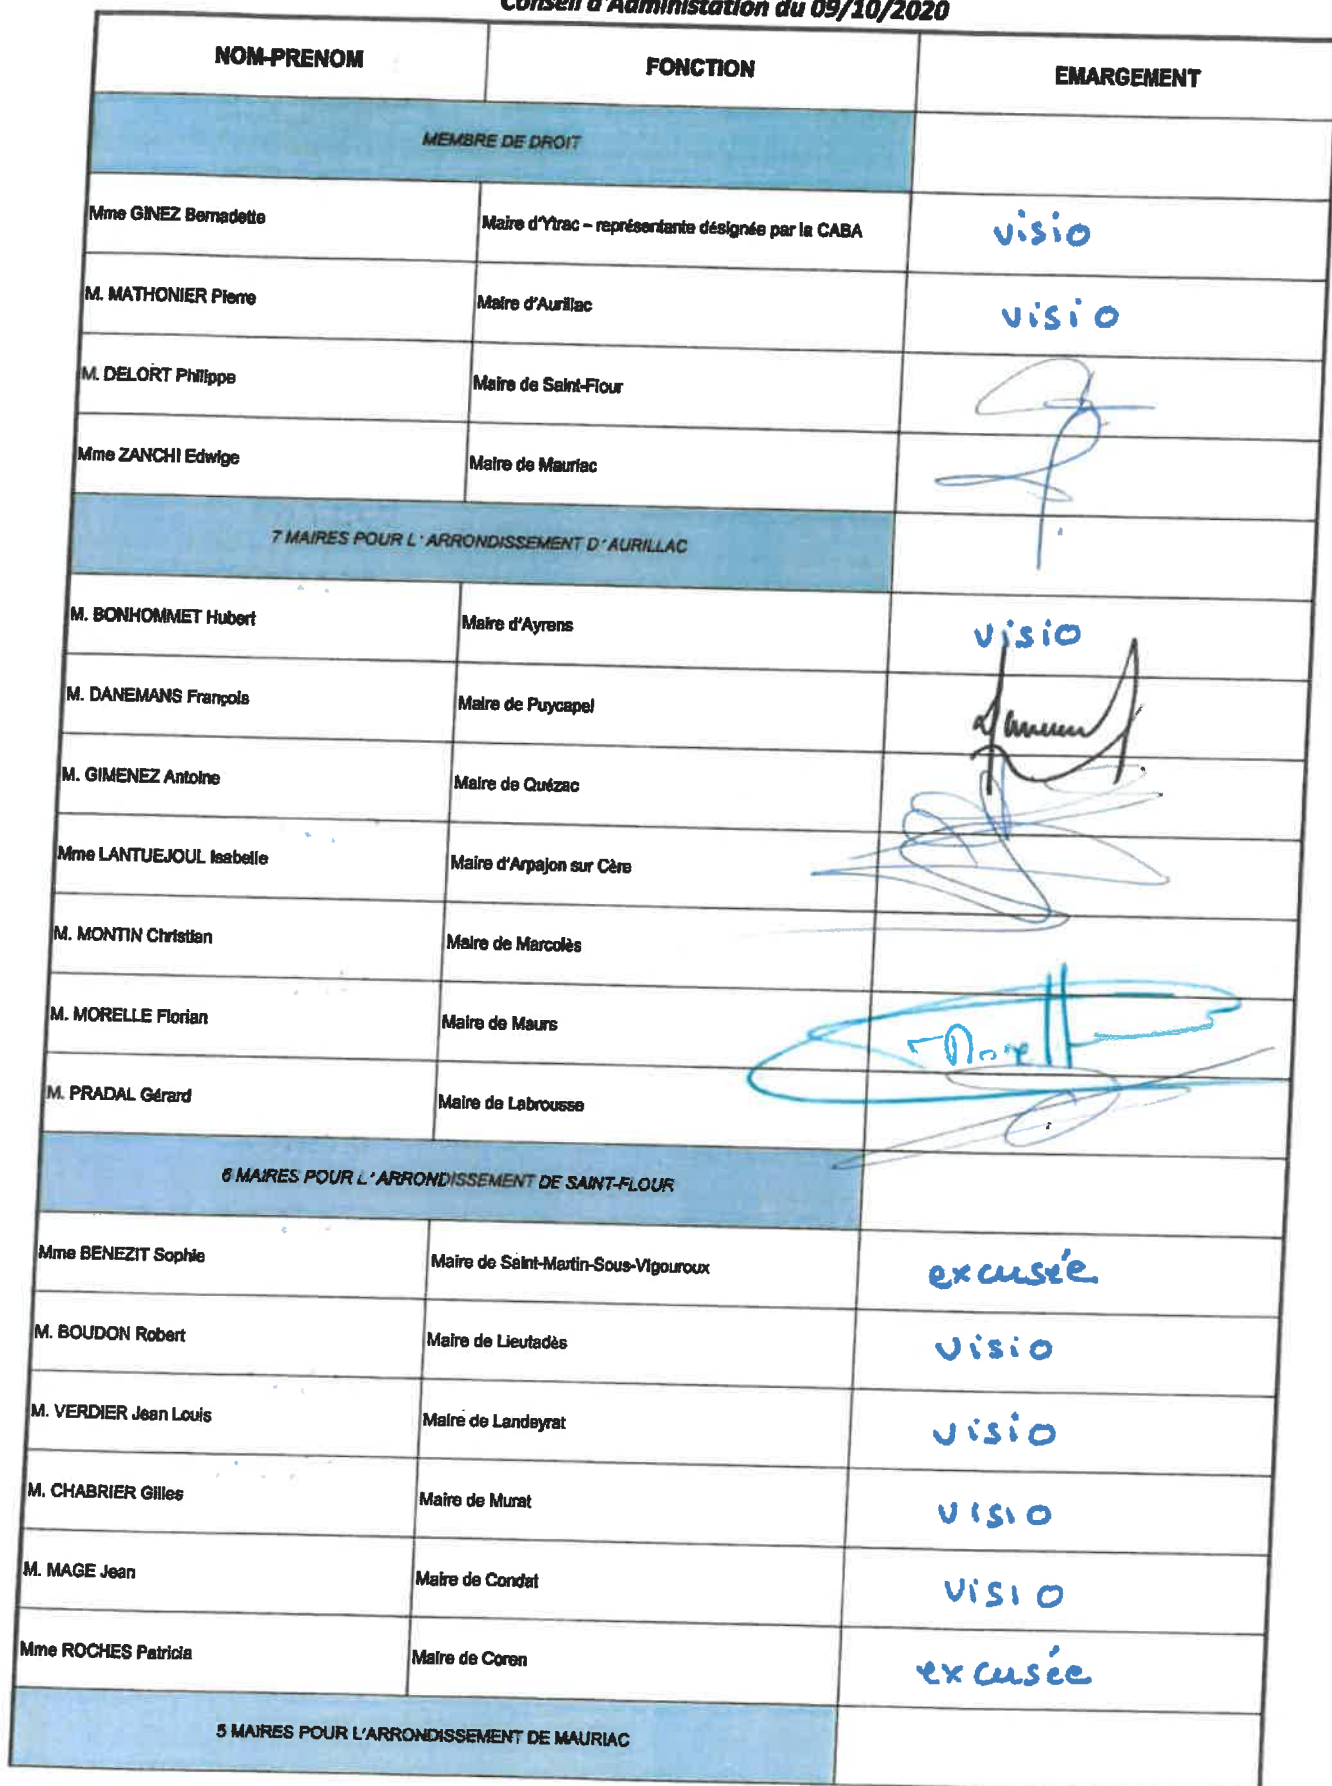 Conseil d'Administation du 09/10/2020
NOM-PRENOM FONCTION EMARGEMENT
MEMBRE DE DROIT
Mme GINEZ Bernadette Maire d'Ytrac – représentante désignée par la CABA visio
M. MATHONIER Pierre Maire d'Aurillac visio
M. DELORT Philippe Maire de Saint-Flour
Mme ZANCHI Edwige Maire de Mauriac
7 MAIRES POUR L'ARRONDISSEMENT D'AURILLAC
M. BONHOMMET Hubert Maire d'Ayrens visio
M. DANEMANS François Maire de Puycapel
M. GIMENEZ Antoine Maire de Quézac
Mme LANTUEJOUL Isabelle Maire d'Arpajon sur Cère
M. MONTIN Christian Maire de Marcolès
M. MORELLE Florian Maire de Maurs
M. PRADAL Gérard Maire de Labrousse
6 MAIRES POUR L'ARRONDISSEMENT DE SAINT-FLOUR
Mme BENEZIT Sophie Maire de Saint-Martin-Sous-Vigouroux excusée
M. BOUDON Robert Maire de Lieutadès visio
M. VERDIER Jean Louis Maire de Landeyrat visio
M. CHABRIER Gilles Maire de Murat visio
M. MAGE Jean Maire de Condat visio
Mme ROCHES Patricia Maire de Coren excusée
5 MAIRES POUR L'ARRONDISSEMENT DE MAURIAC